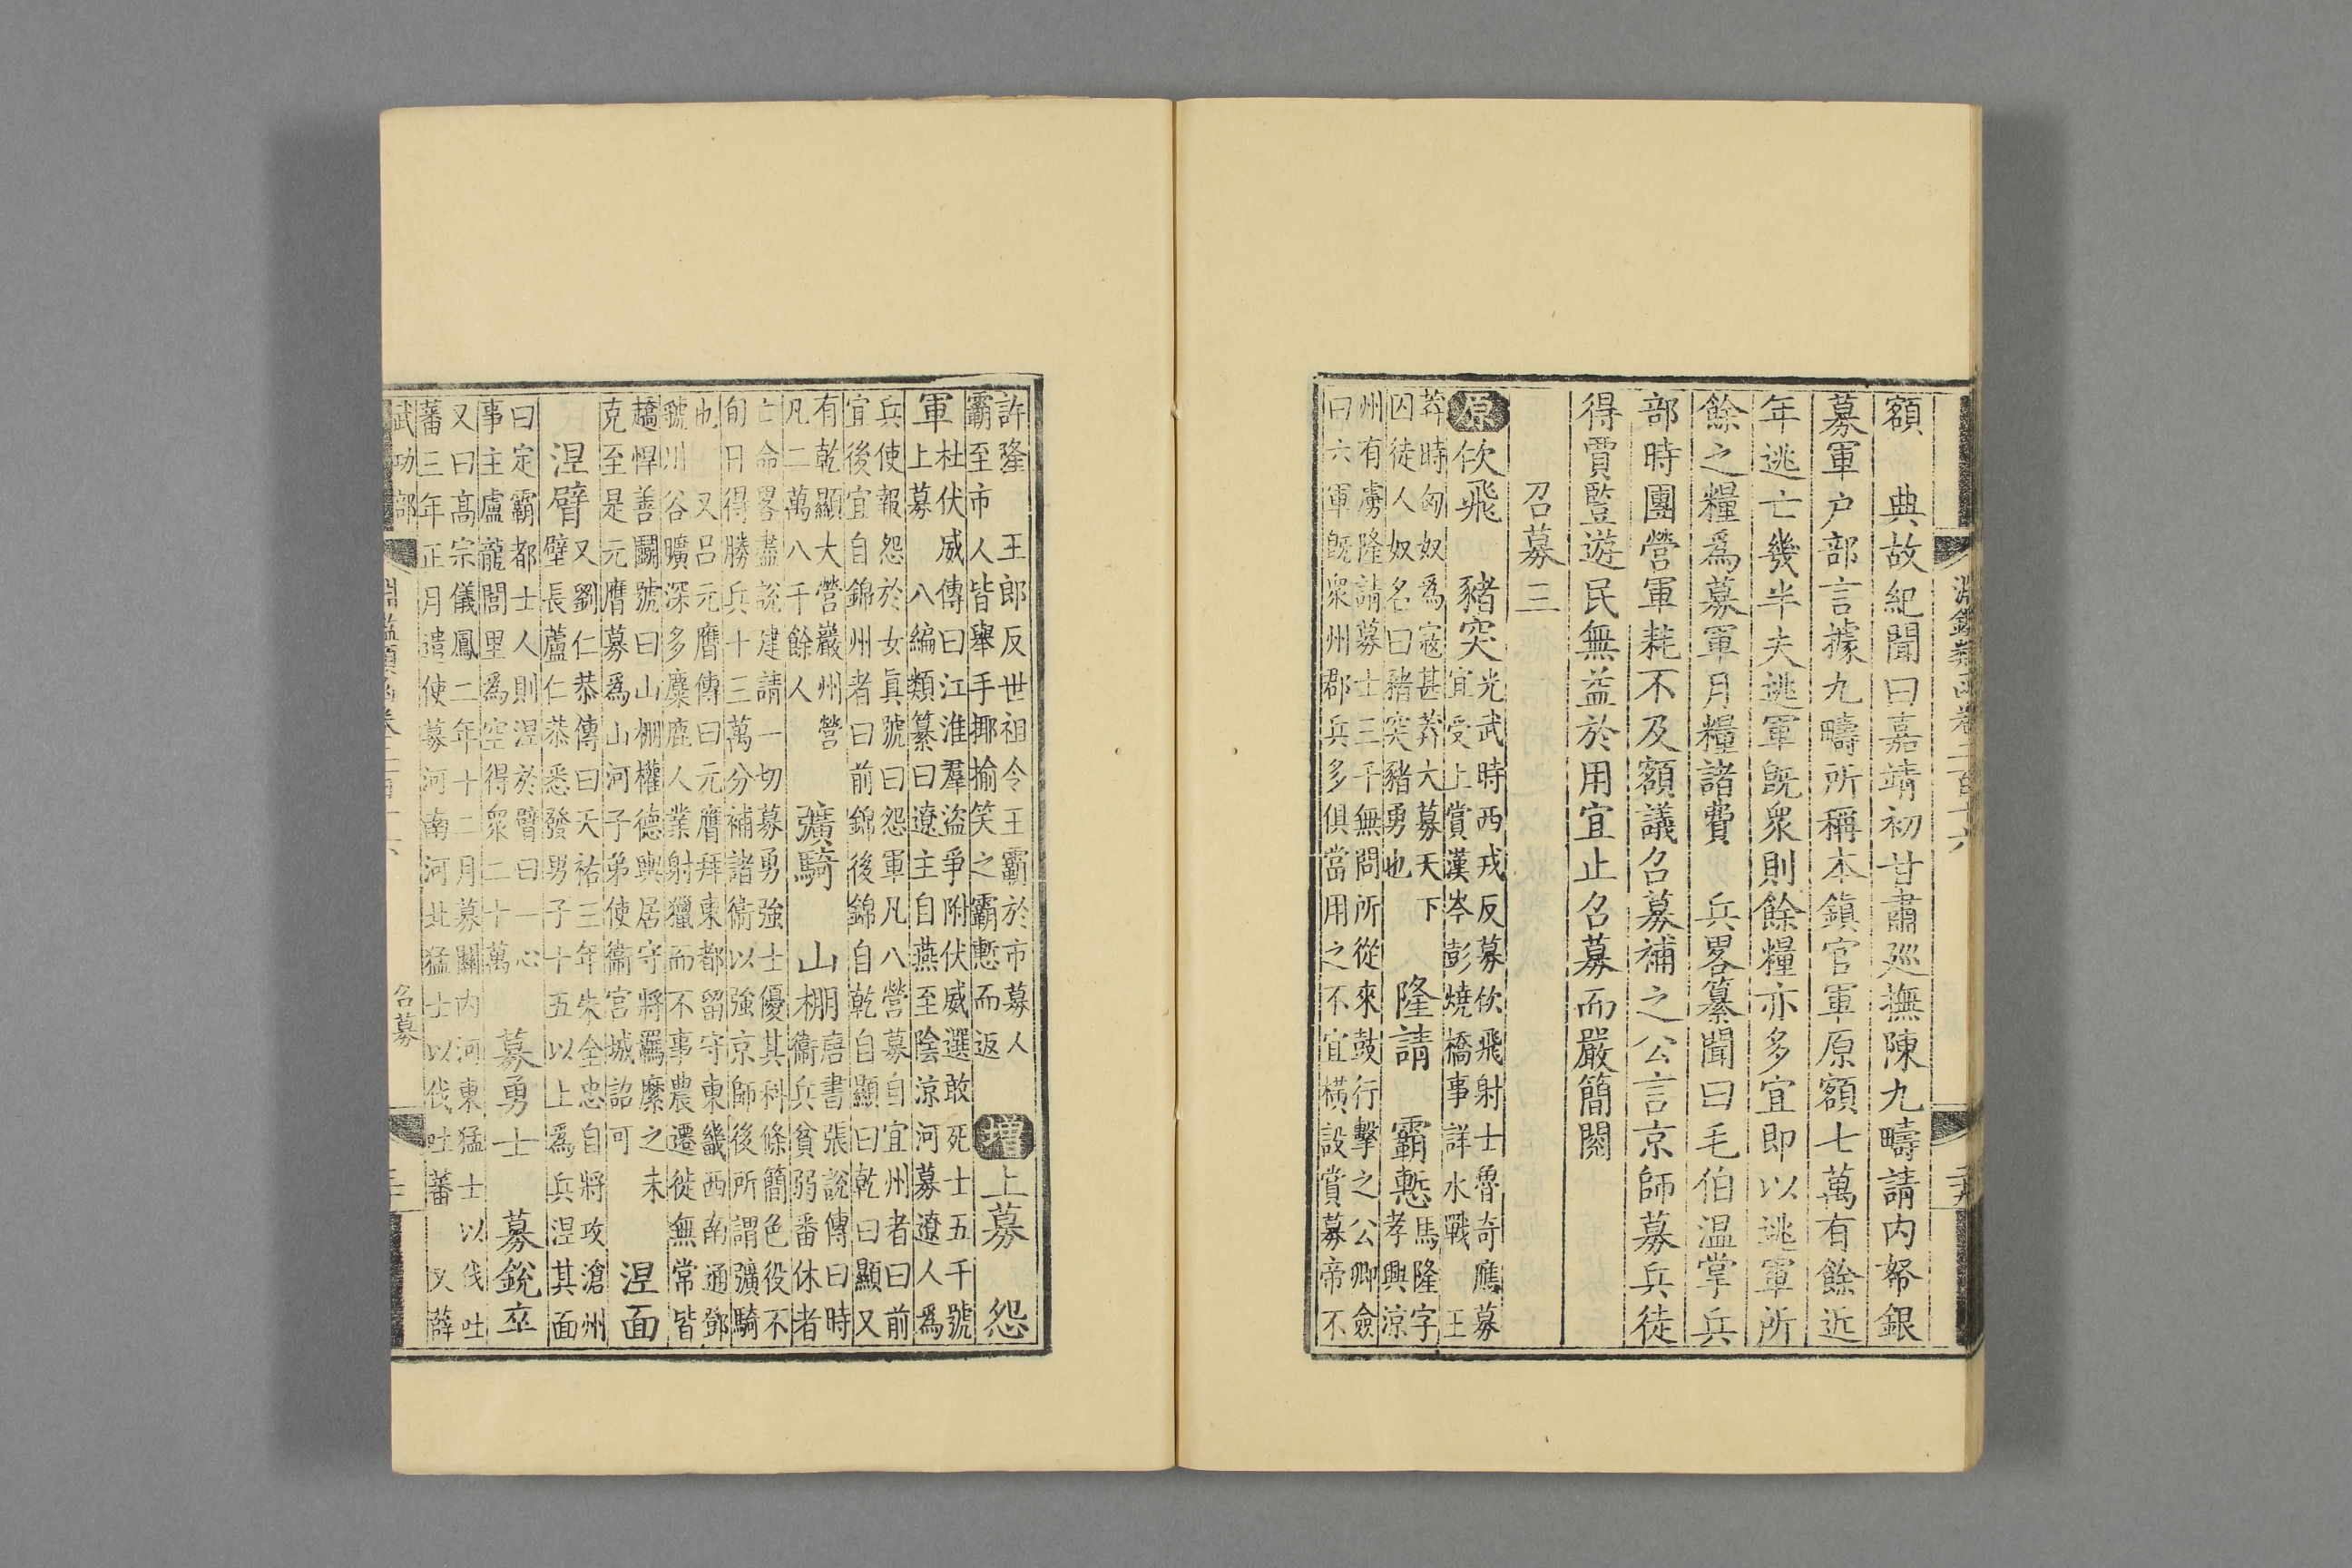 淵鑑類函卷二百十六
額　典故紀聞曰嘉靖初甘肅巡撫陳九疇請内帑銀
募軍户部言據九疇所稱本鎮官軍原額七萬有餘近
年逃亡幾半夫逃軍旣衆則餘糧亦多宜即以逃軍所
餘之糧爲募軍月糧諸費　兵畧纂聞曰毛伯温掌兵
部時團營軍耗不及額議召募補之公言京師募兵徒
得賈豎遊民無益於用宜止召募而嚴簡閱
召募三
原佽飛　豬突
光武時西戎反募佽飛射士魯奇應募
宜受上賞漢岑彭燒橋事詳水戰　王
莽時匈奴爲寇甚莽大募天下
囚徒人奴名曰豬突豨勇也
隆請　霸慙
馬隆字
孝興涼
州有虜隆請募士三千無問所從來鼓行擊之公卿僉
曰六軍旣衆州郡兵多俱當用之不宜橫設賞募帝不
許隆　王郎反世祖令王霸於市募人
霸至市人皆舉手揶揄笑之霸慙而返
增上募　怨
軍
杜伏威傳曰江淮羣盜爭附伏威選敢死士五千號
上募　八編類纂曰遼主自燕至陰涼河募遼人爲
兵使報怨於女眞號曰怨軍凡八營募自宜州者曰前
宜後宜自錦州者曰前錦後錦自乾自顯曰乾曰顯又
有乾顯大營巖州營
凡二萬八千餘人
彍騎　山棚
唐書張說傳曰時
衞兵貧弱番休者
亡命畧盡說建請一切募勇強士優其科條簡色役不
旬日得勝兵十三萬分補諸衞以強京師後所謂彍騎
也　又呂元膺傳曰元膺拜東都留守東畿西南通鄧
虢川谷曠深多麋鹿人業射獵而不事農遷徙無常皆
趫悍善鬭號曰山棚權德輿居守將羈縻之未
克至是元膺募爲山河子弟使衞宮城詔可
涅面
涅臂
又劉仁恭傳曰天祐三年朱全忠自將攻滄州
壁長蘆仁恭悉發男子十五以上爲兵涅其面
曰定霸都士人則涅於臂曰一心
事主盧龍閭里爲空得衆二十萬
募勇士　募銳卒
又曰高宗儀鳳二年十二月募關内河東猛士以伐吐
蕃三年正月遣使募河南河北猛士以伐吐蕃　又薛
武功部
召募